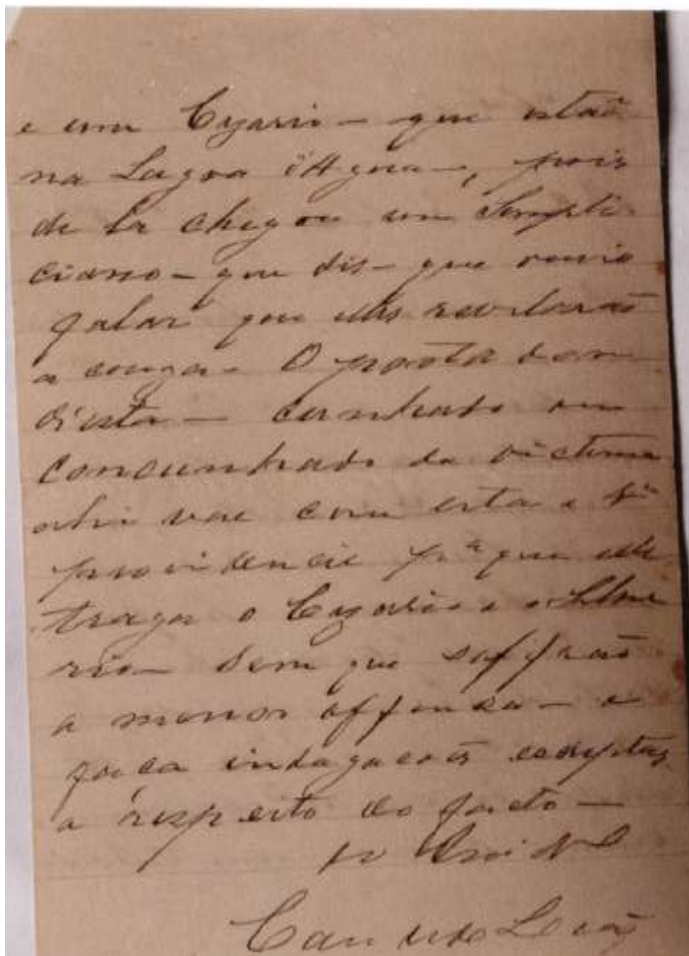 e um Cyario – que estão
na Lagoa d'Agua –, pois
de la chegou um Simpli
ciano – que dis – que ouvio
falar que elles revelarão
a couza – O portador
d'esta – cunhado ou
concunhado da victima
ahi vae com esta e Sr
providencie pa que elle
traga o Cyario e o
rio – sem que soffrão
a menor offensa – e
faça indagacoēs escriptas
a respeito do facto –
Candido